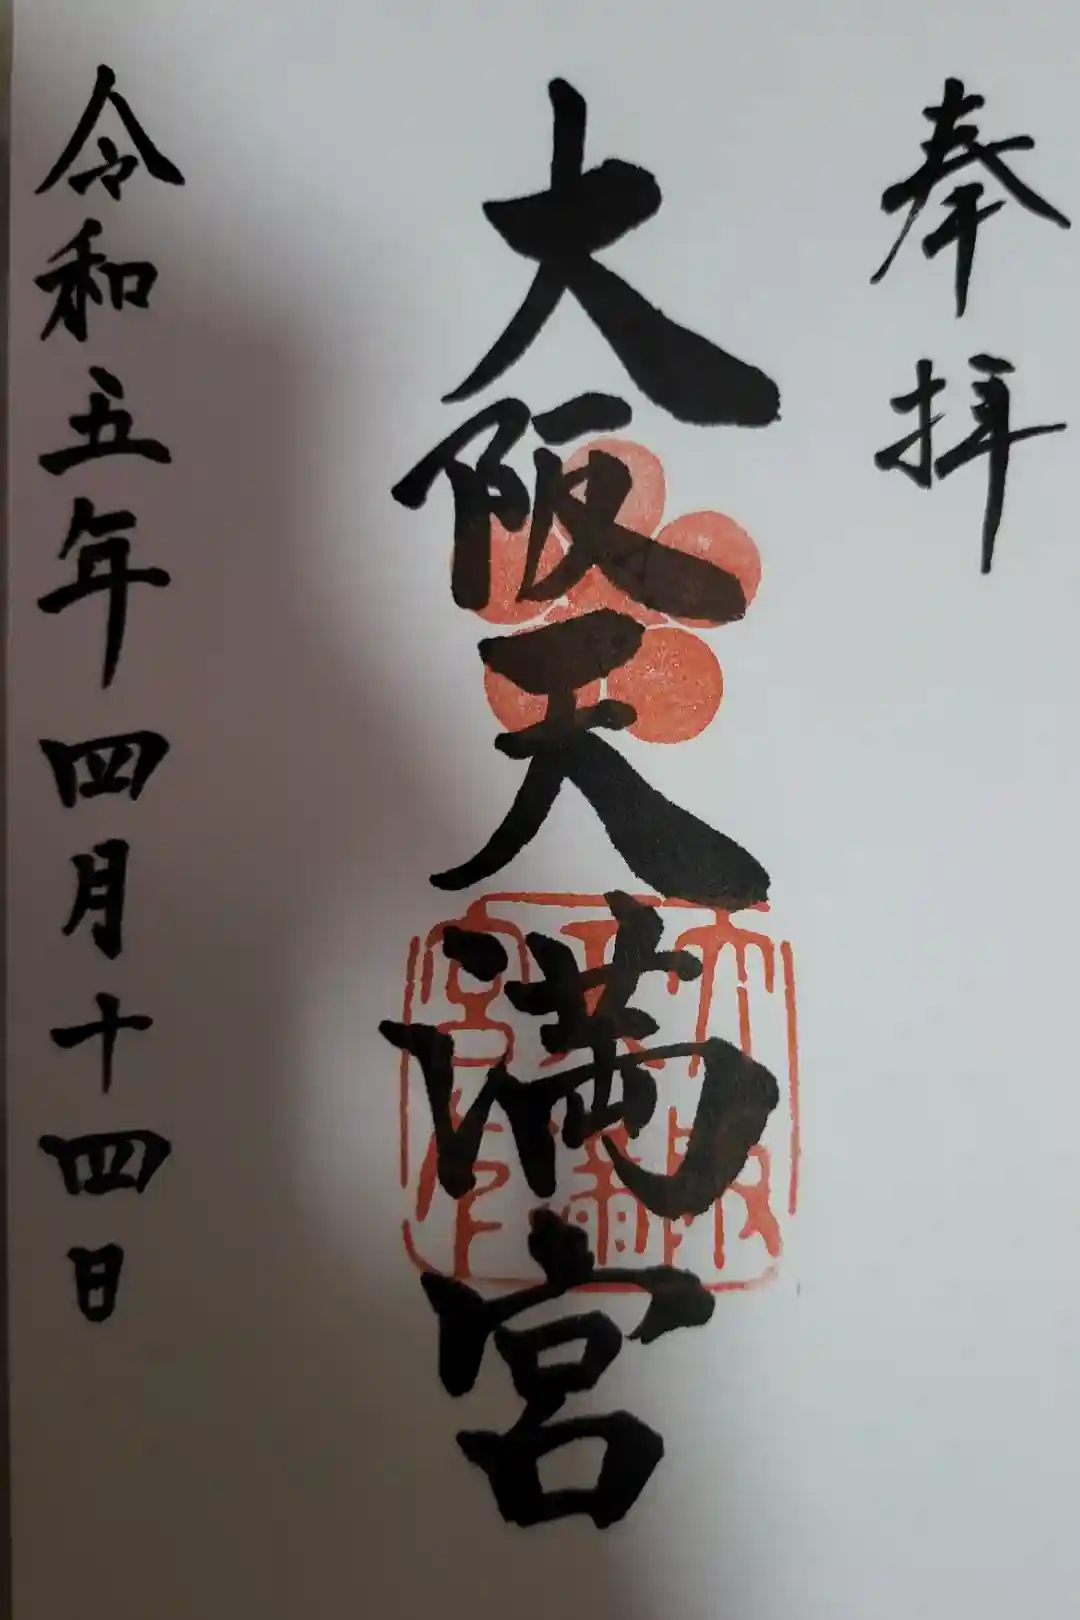 奉拝
大阪天満宮
令和五年四月十四日